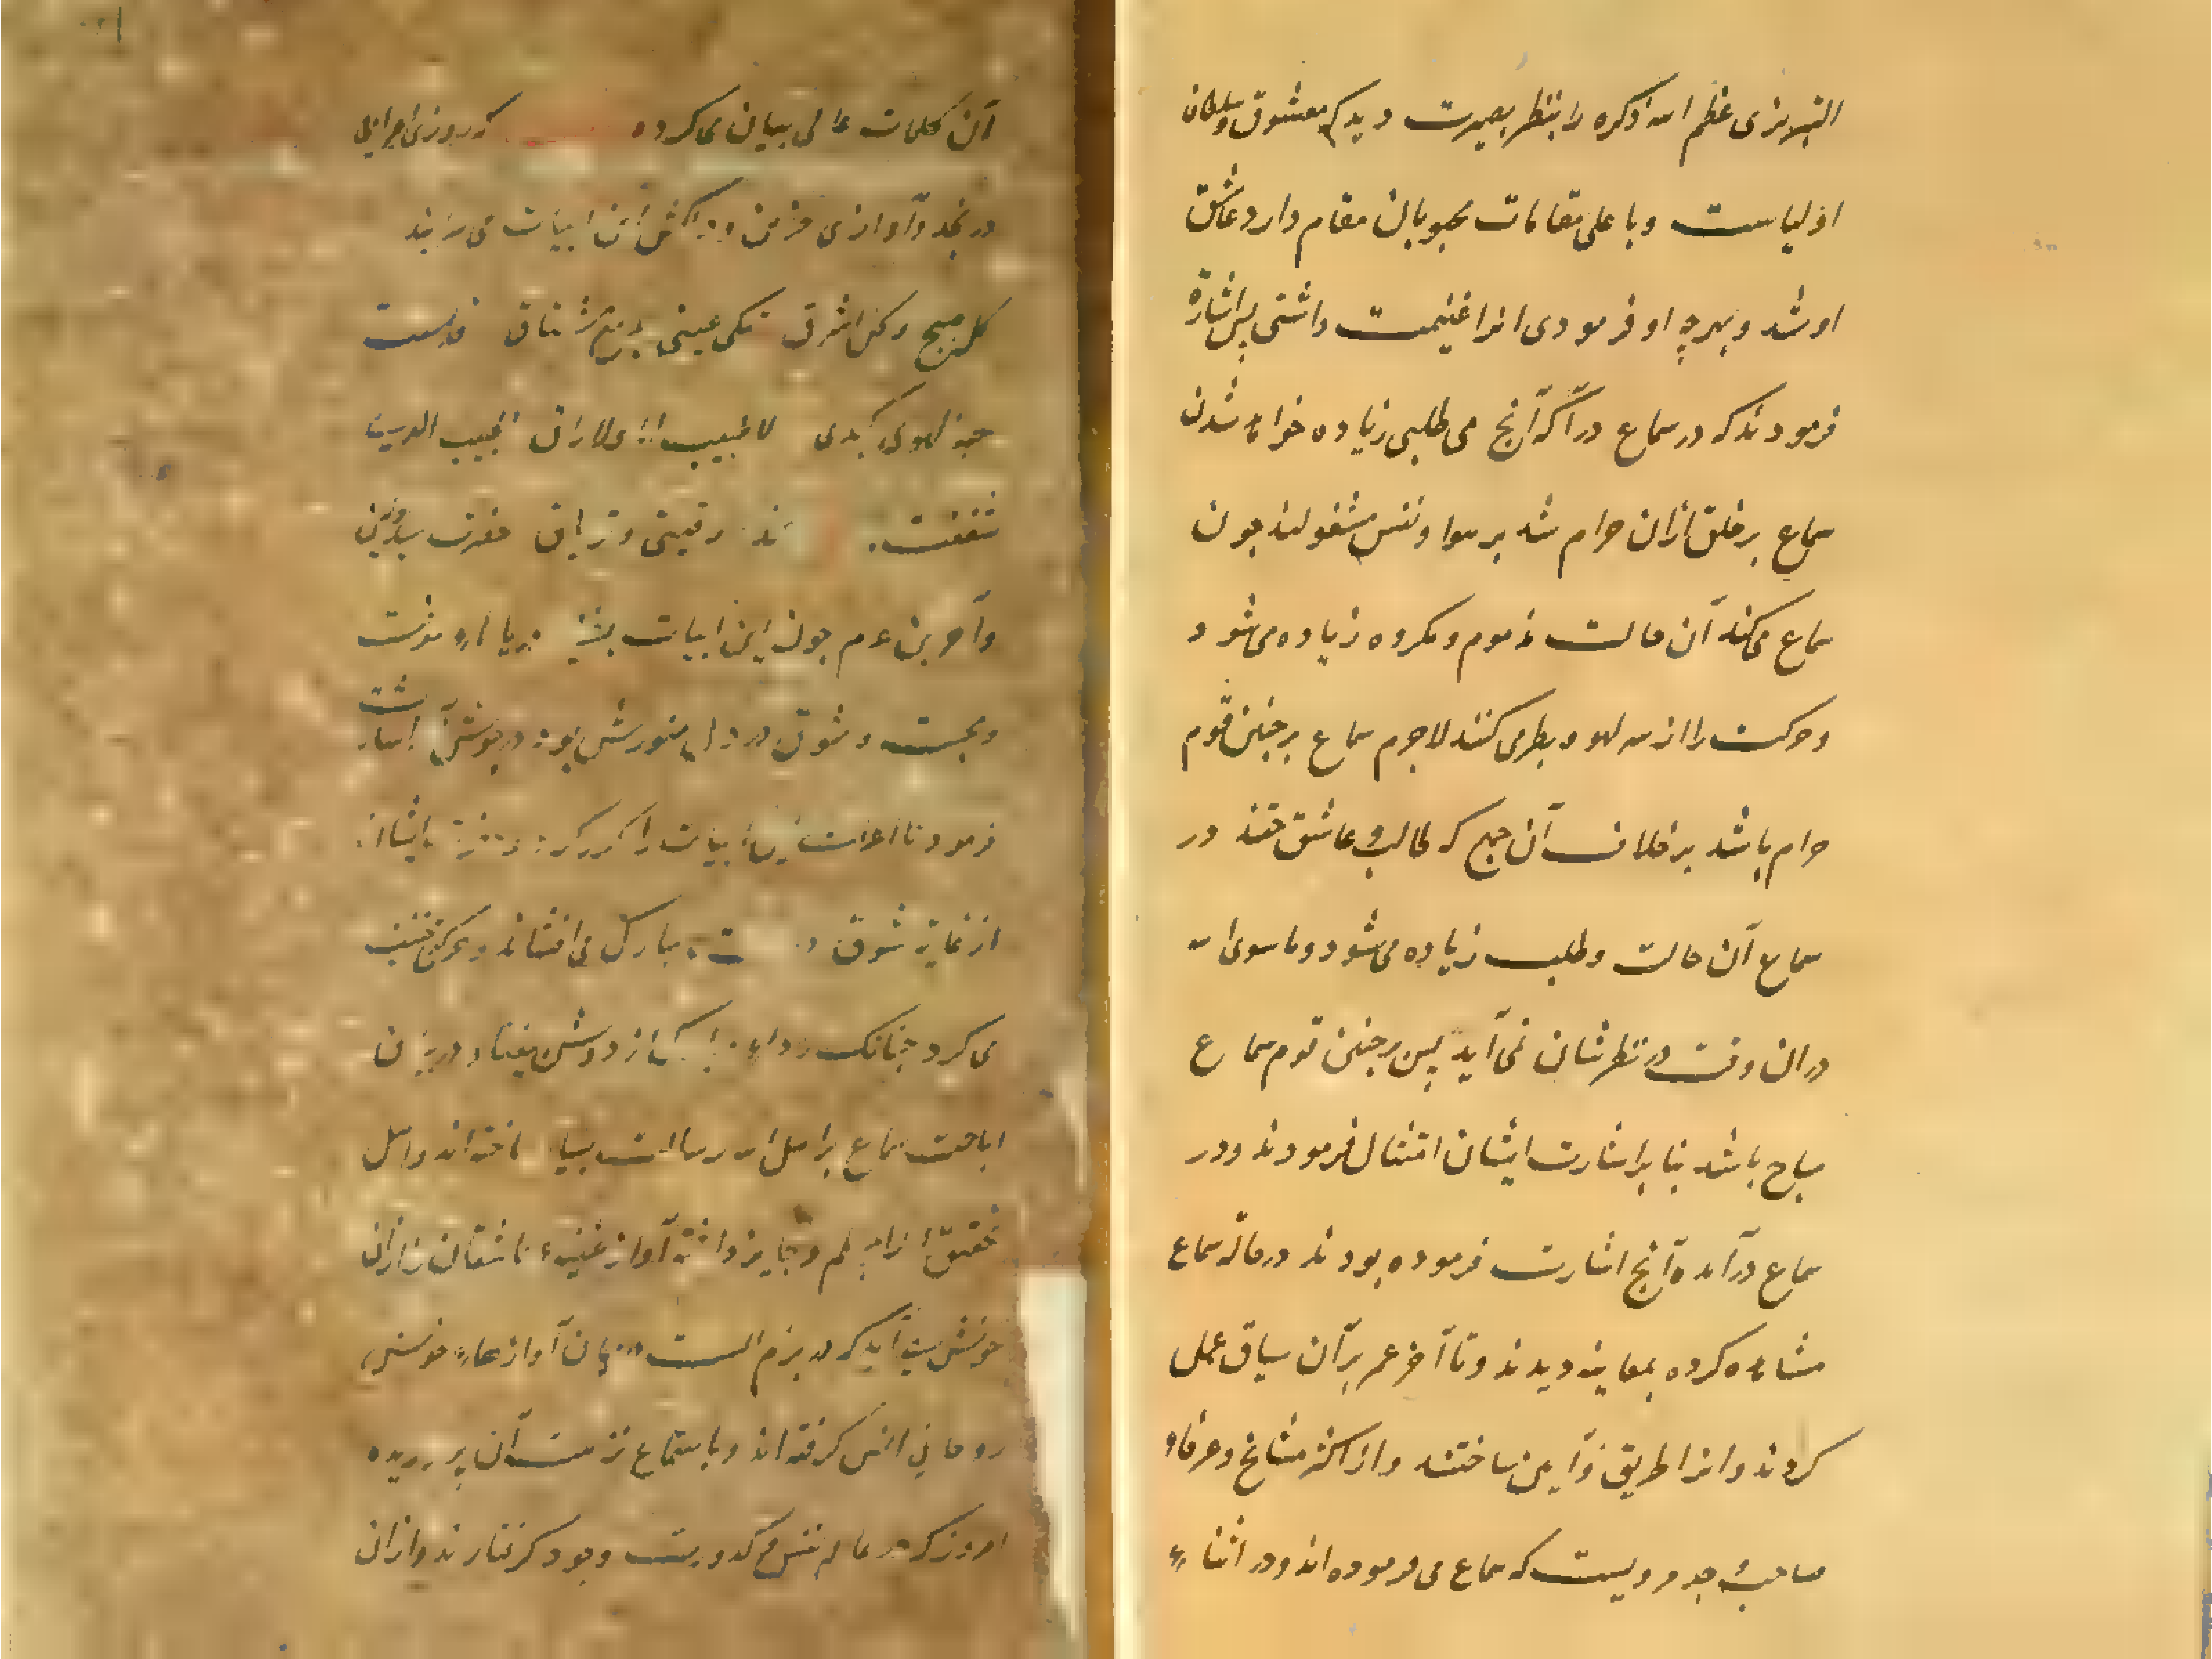 التبریزی عظم الله ذکره را بنظر بصیرت دید که معشوق و سلطان
اولیاست و با علی مقامات محبوبان مقام دارد عاشق
او شد و بهرچه او فرمودی انرا غنیمت داشتی پس اشارة
فرمودند که در سماع درآ که آنچ می طلبی زیاده خواهد شدن
سماع بر خلق ازان حرام شد بر هوا و نفس مشغولند چون
سماع می کنند آن حالت مذموم و مکروه زیاده می شود
و حرکت را از سر لهو و بطر می کنند لاجرم سماع بر چنین قوم
حرام باشد بر خلاف آن جمع که طالب و عاشق حقند در
سماع آن حالت و طلب زیاده می شود و ماسوی الله
دران وقت در نظرشان نمی آید پس بر چنین قوم سماع
مباح باشد بنا بر اشارت ایشان امتثال فرمودند و در
سماع درآمده آنچ اشارت فرموده بودند در حالة سماع
مشاهده کرده بمعاینه دیدند و تا آخر عمر بر آن سیاق عمل
کردند و انرا طریق و آیین ساختند و از اکثر مشایخ و عرفاء
صاحب وجد مرویست که سماع می فرموده اند و در اثناء
آن کلمات عالی بیان می کرده که روزی اعرابی
در نجد و آوازی حزین این ابیات می
کل صبح و کل اشراق تبکی عینی بدمع مشتاق قد لسعت
حیة الهوی کبدی لا طبیب لها ولا راق الا الحبیب الذی
شغفت رقیتی و تریاقی حضرت سید
و آخرین عم چون این ابیات
و محبت و شوق در دل منورش بود در جوش آمد
فرمود تا این ابیات را مکرر کرد
از غایة شوق مبارک می افشاند و حرکتی
می کرد چنانک رداء از دوشش بیفتاد و در بیان
اباحت سماع بر اهل الله رسالت ساخته اند و اهل
تحقیق و جایز داشته آواز عاشقان را ازان
خوش می آید که در بزم الست آوازهاء خوش
روحانی انس گرفته اند و باستماع آن پروریده
امروز که در عالم نفس و کدورت وجود گرفتارند و ازان